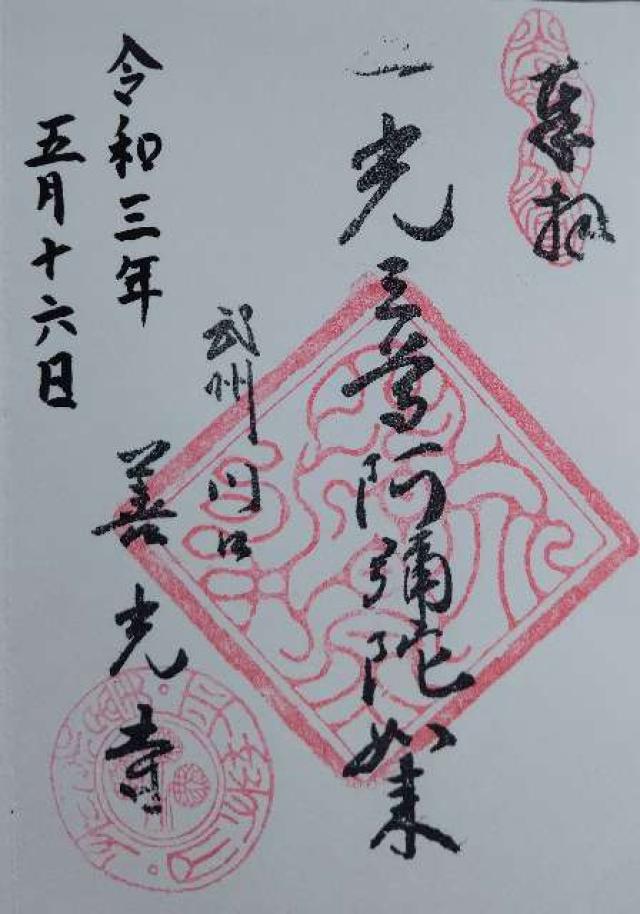 奉拝
一光三尊阿彌陀如来
武州川口
善光寺
令和三年
五月十六日